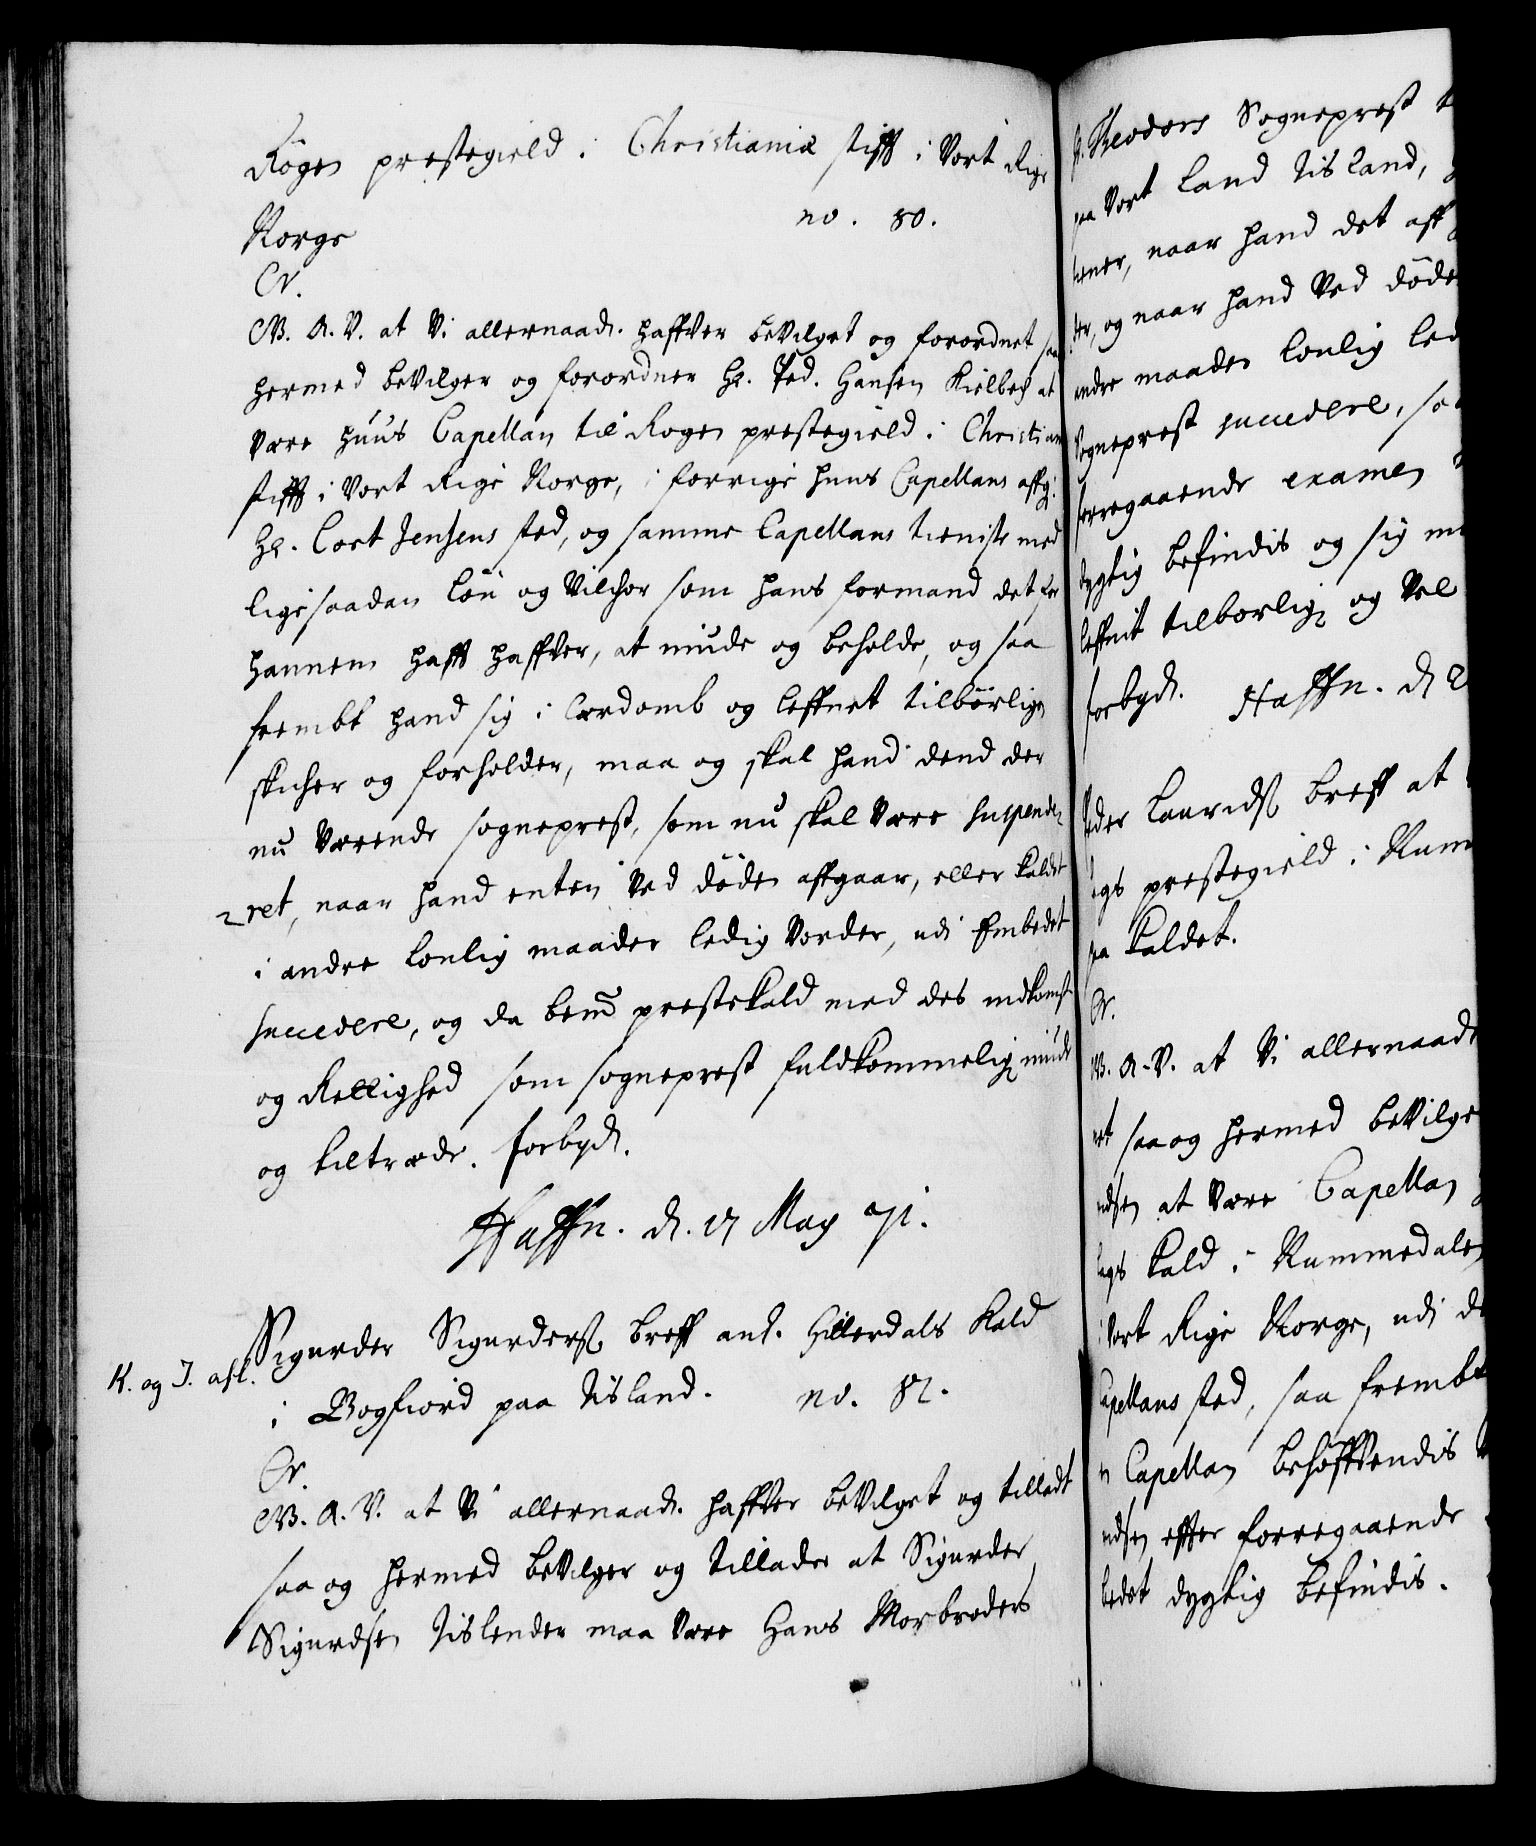 Røgen prestegield i Christianiæ stifft i Vort Rige
Norge no. 80.
Cr.
W. A. V. at Vi allernaad. haffver beVilget og forordnet saa
hermed beVilger og forordner Hr. Ped. Hansen Kielbech at
være huus Capellan til Rogen prestegield i Christian
stifft i Vort Rige Norge, i forrige huus Capellans affg:
Hr. Cort Jensens sted, og samme Capellans tieniste med
lige saadan løn og Vilchor som hans formand det for
hannem hafft haffver, at niude og beholde, og saa
frembt hand sig i lærdomb og leffnet tilbørligen
skicher og forholder, maa og skal hand dend der
nu Værende sogneprest, som nu skal Være suspende-
ret, naar hand enten Ved døden affgaar, eller kaldet
i andre lovlig maader ledig Vorder, udi Embedet
succedere, og da bemt prestekald med des indkomst
og Rettighed som sogneprest fuldkommelig niude
og tiltræde. forbyd.
Haffn. d. 17 May 71.
Sigurder Sigurders. breff ant. Hitterdals Kald
K. og J. afl.
i Wogfiord paa Iisland. no. 81.
Cr.
W. A. V. at Vi allernaad. haffver beVilget og tilladt
saa og hermed beVilger og tillader at Sigurder
Sigurdsen Iislender maa Være Hans Morbroders
Theodors Sogneprest
paa Vort Land Iisland,
naar hand det aff
og naar hand Ved døde
andre maader lovlig led
Sogneprest succedere, so
forregaaende examen
dygtig befindis og sig
leffnit tilbørlig og Vel
forbyd. Haffn. d. 2
Peder Laurids. breff at
prestegield i Num
paa kaldet.
Cr.
W. A. V. at Vi allernaad
saa og hermed beVilge
at Være Capellan
kald i Nummedalen
Vort Rige Norge, udi d
Capellans sted, saa frembt
Capellan behøffVendis
effter forregaaende
dygtig befindis.